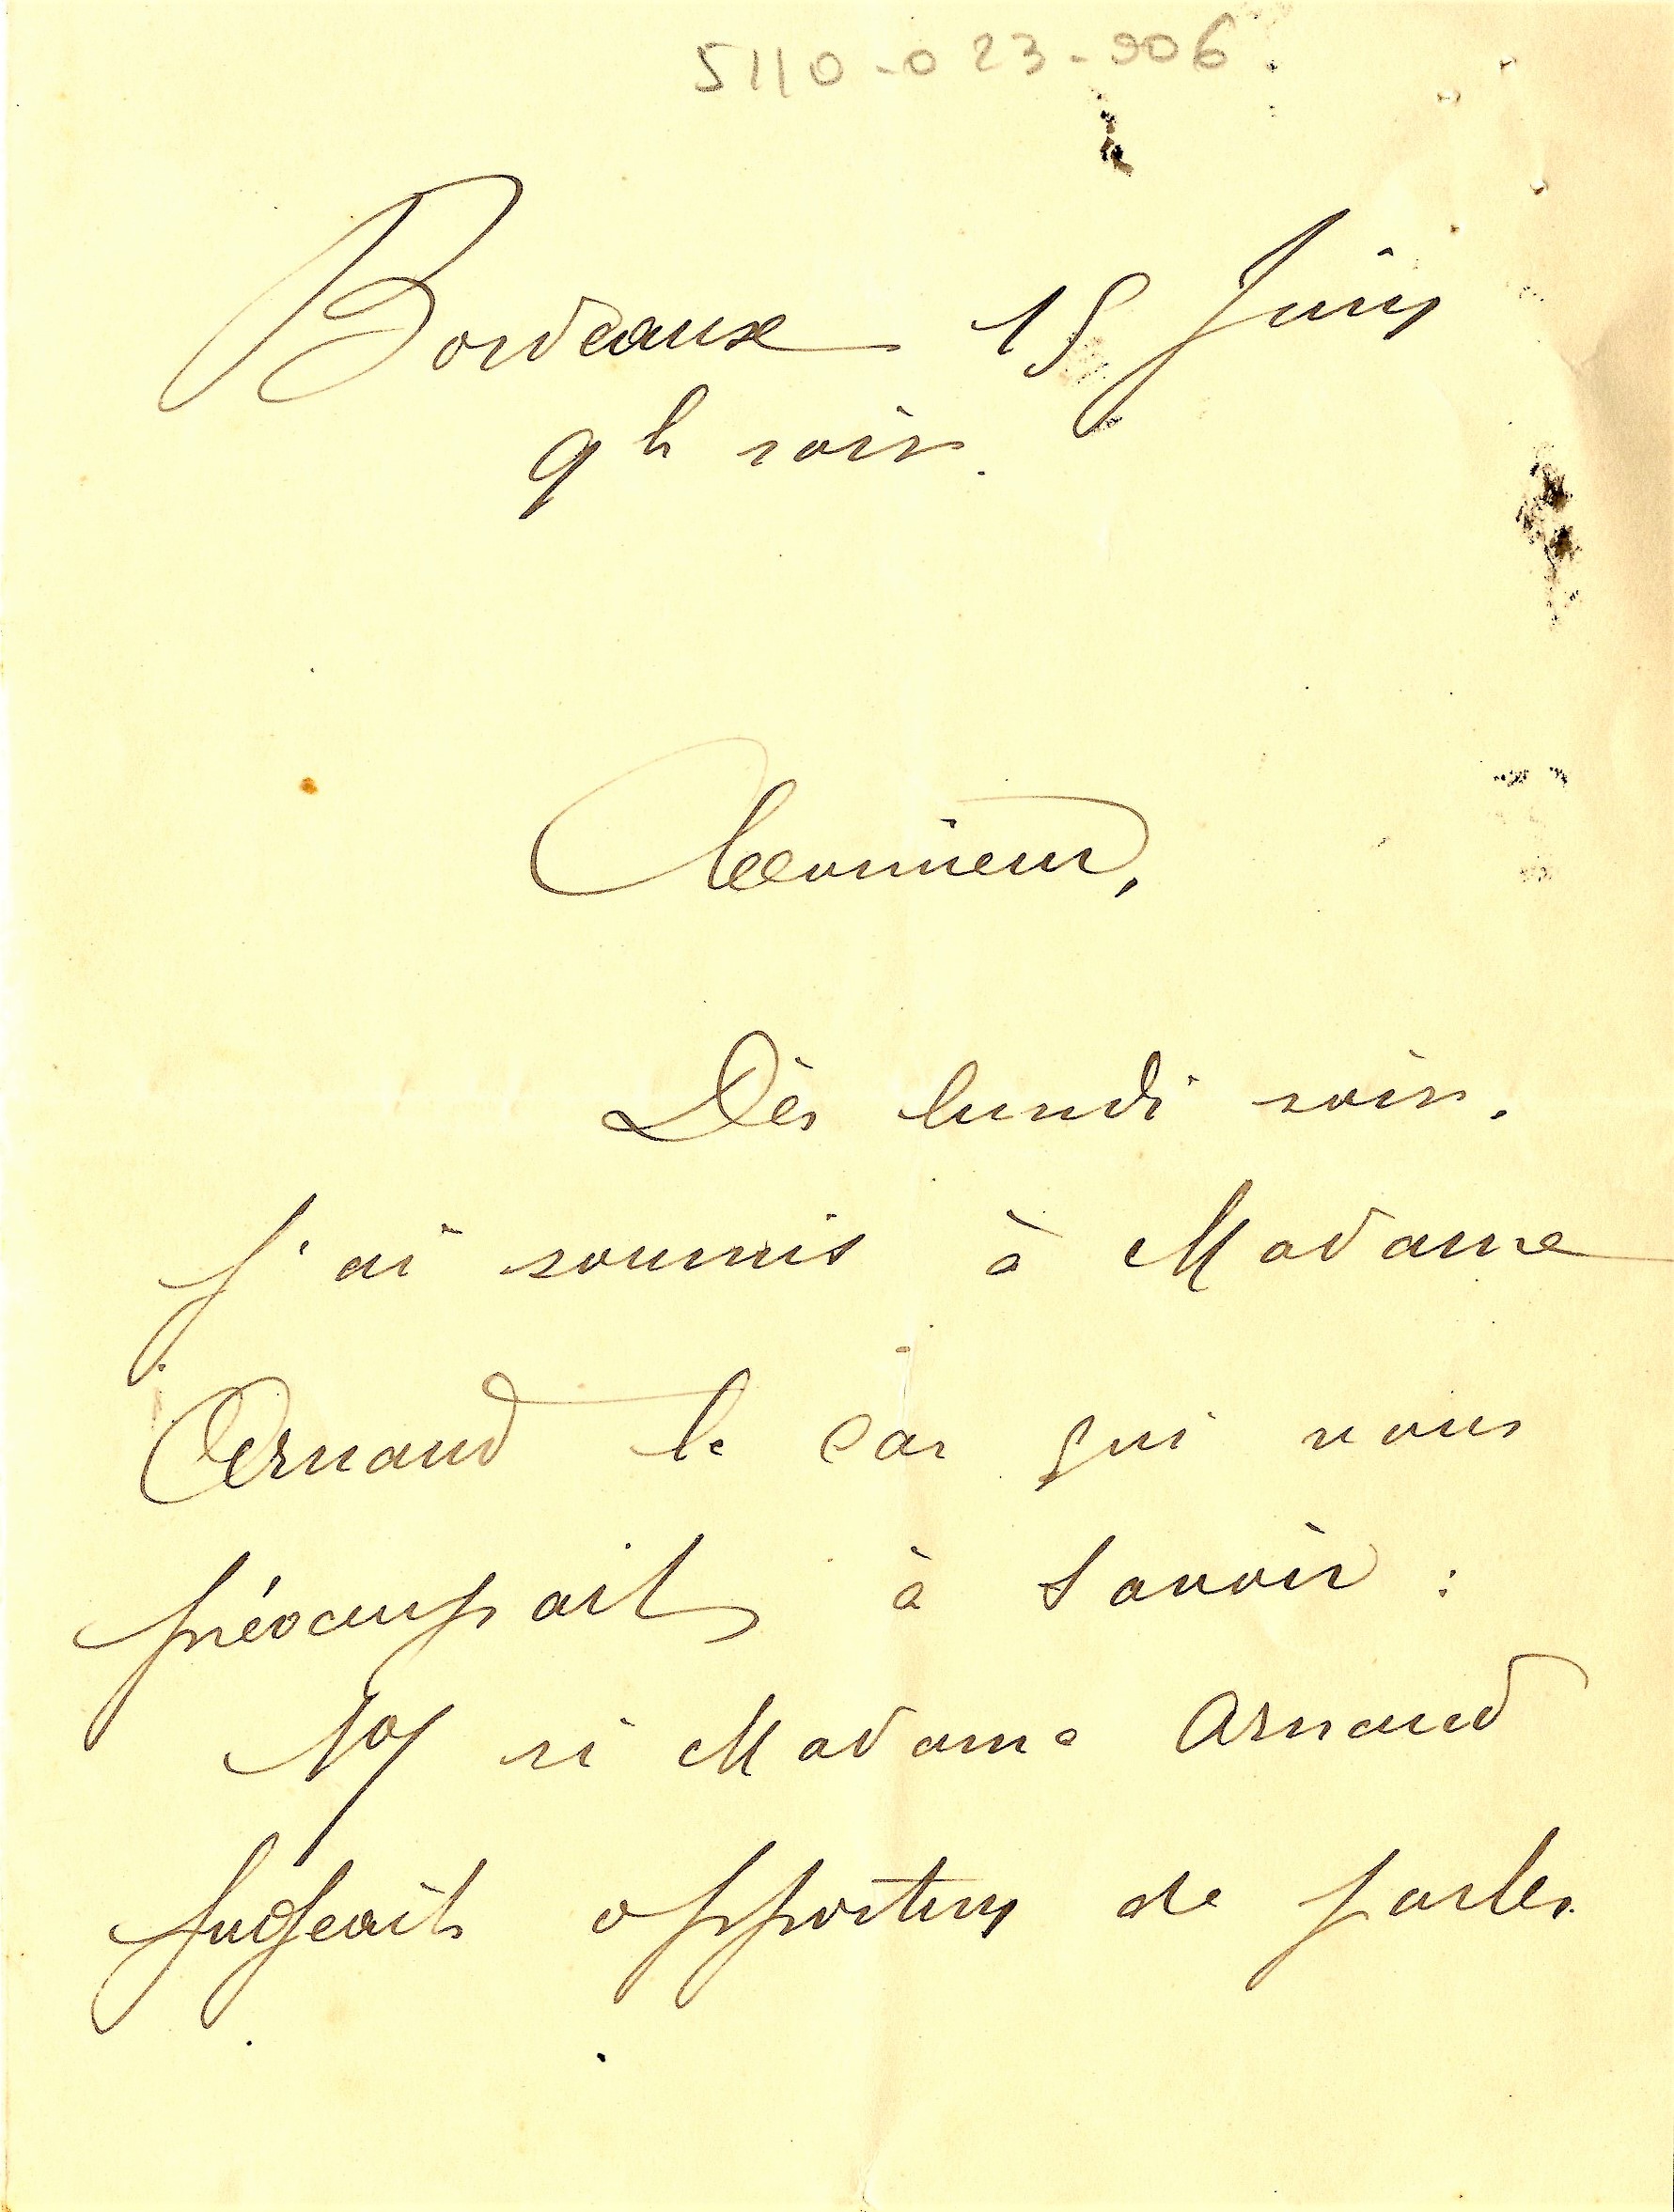 5110-023-906
Bordeaux 15 Juin
9h soir.
Monsieur,
Dès lundi soir.
j'ai soumis à Madame
Arnaud le cas qui nous
préocupait à savoir :
1°/ si Madame Arnaud
jugeait opportun de parler